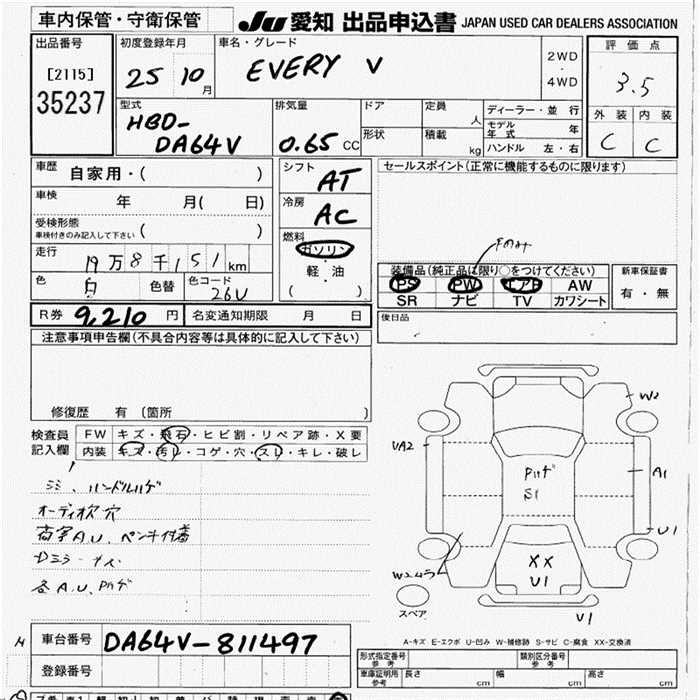 車内保管・守衛保管
JU 愛知 出品申込書 JAPAN USED CAR DEALERS ASSOCIATION
出品番号
[2115]
35237
初度登録年月
25 10 月
車名・グレード
EVERY V
2WD
・
4WD
評価点
3.5
外装 内装
C C
型式
HBD-
DA64V
排気量
0.65 CC
ドア
形状
定員 人
積載 kg
ディーラー・並行
モデル年式 年
ハンドル 左・右
車歴
自家用・( )
車検 年 月( 日)
受検形態
車検付きのみ記入して下さい ( )
走行
19万8千151km
色 白 色替 色コード 26U
シフト
AT
冷房
AC
燃料
ガソリン
・
軽・油
( )
セールスポイント(正常に機能するものに限ります)
Fのみ
装備品(純正品に限り○をつけてください)
PS PW エアB AW
SR ナビ TV カワシート
新車保証書
有・無
R券 9,210 円 名変通知期限 月 日
後日品
注意事項申告欄(不具合内容等は具体的に記入して下さい)
修復歴 有(箇所 )
検査員
記入欄
FW キズ・飛石・ヒビ割・リペア跡・X要
内装 キズ・汚レ・コゲ・穴・スレ・キレ・破レ
ハンドルハゲ
オーディオ欠 穴
荷室A.U、ペンキ付着
各A.U、Pハゲ
W2
UA2
Pハゲ
S1
A1
U1
XX
U1
U1
スペア
A-キズ E-エクボ U-凹み W-補修跡 S-サビ C-腐食 XX-交換済
車台番号 DA64V-811497
登録番号
形式指定番号 参考
類別区分番号 参考
車庫証明用 参考 長さ cm 幅 cm 高さ cm